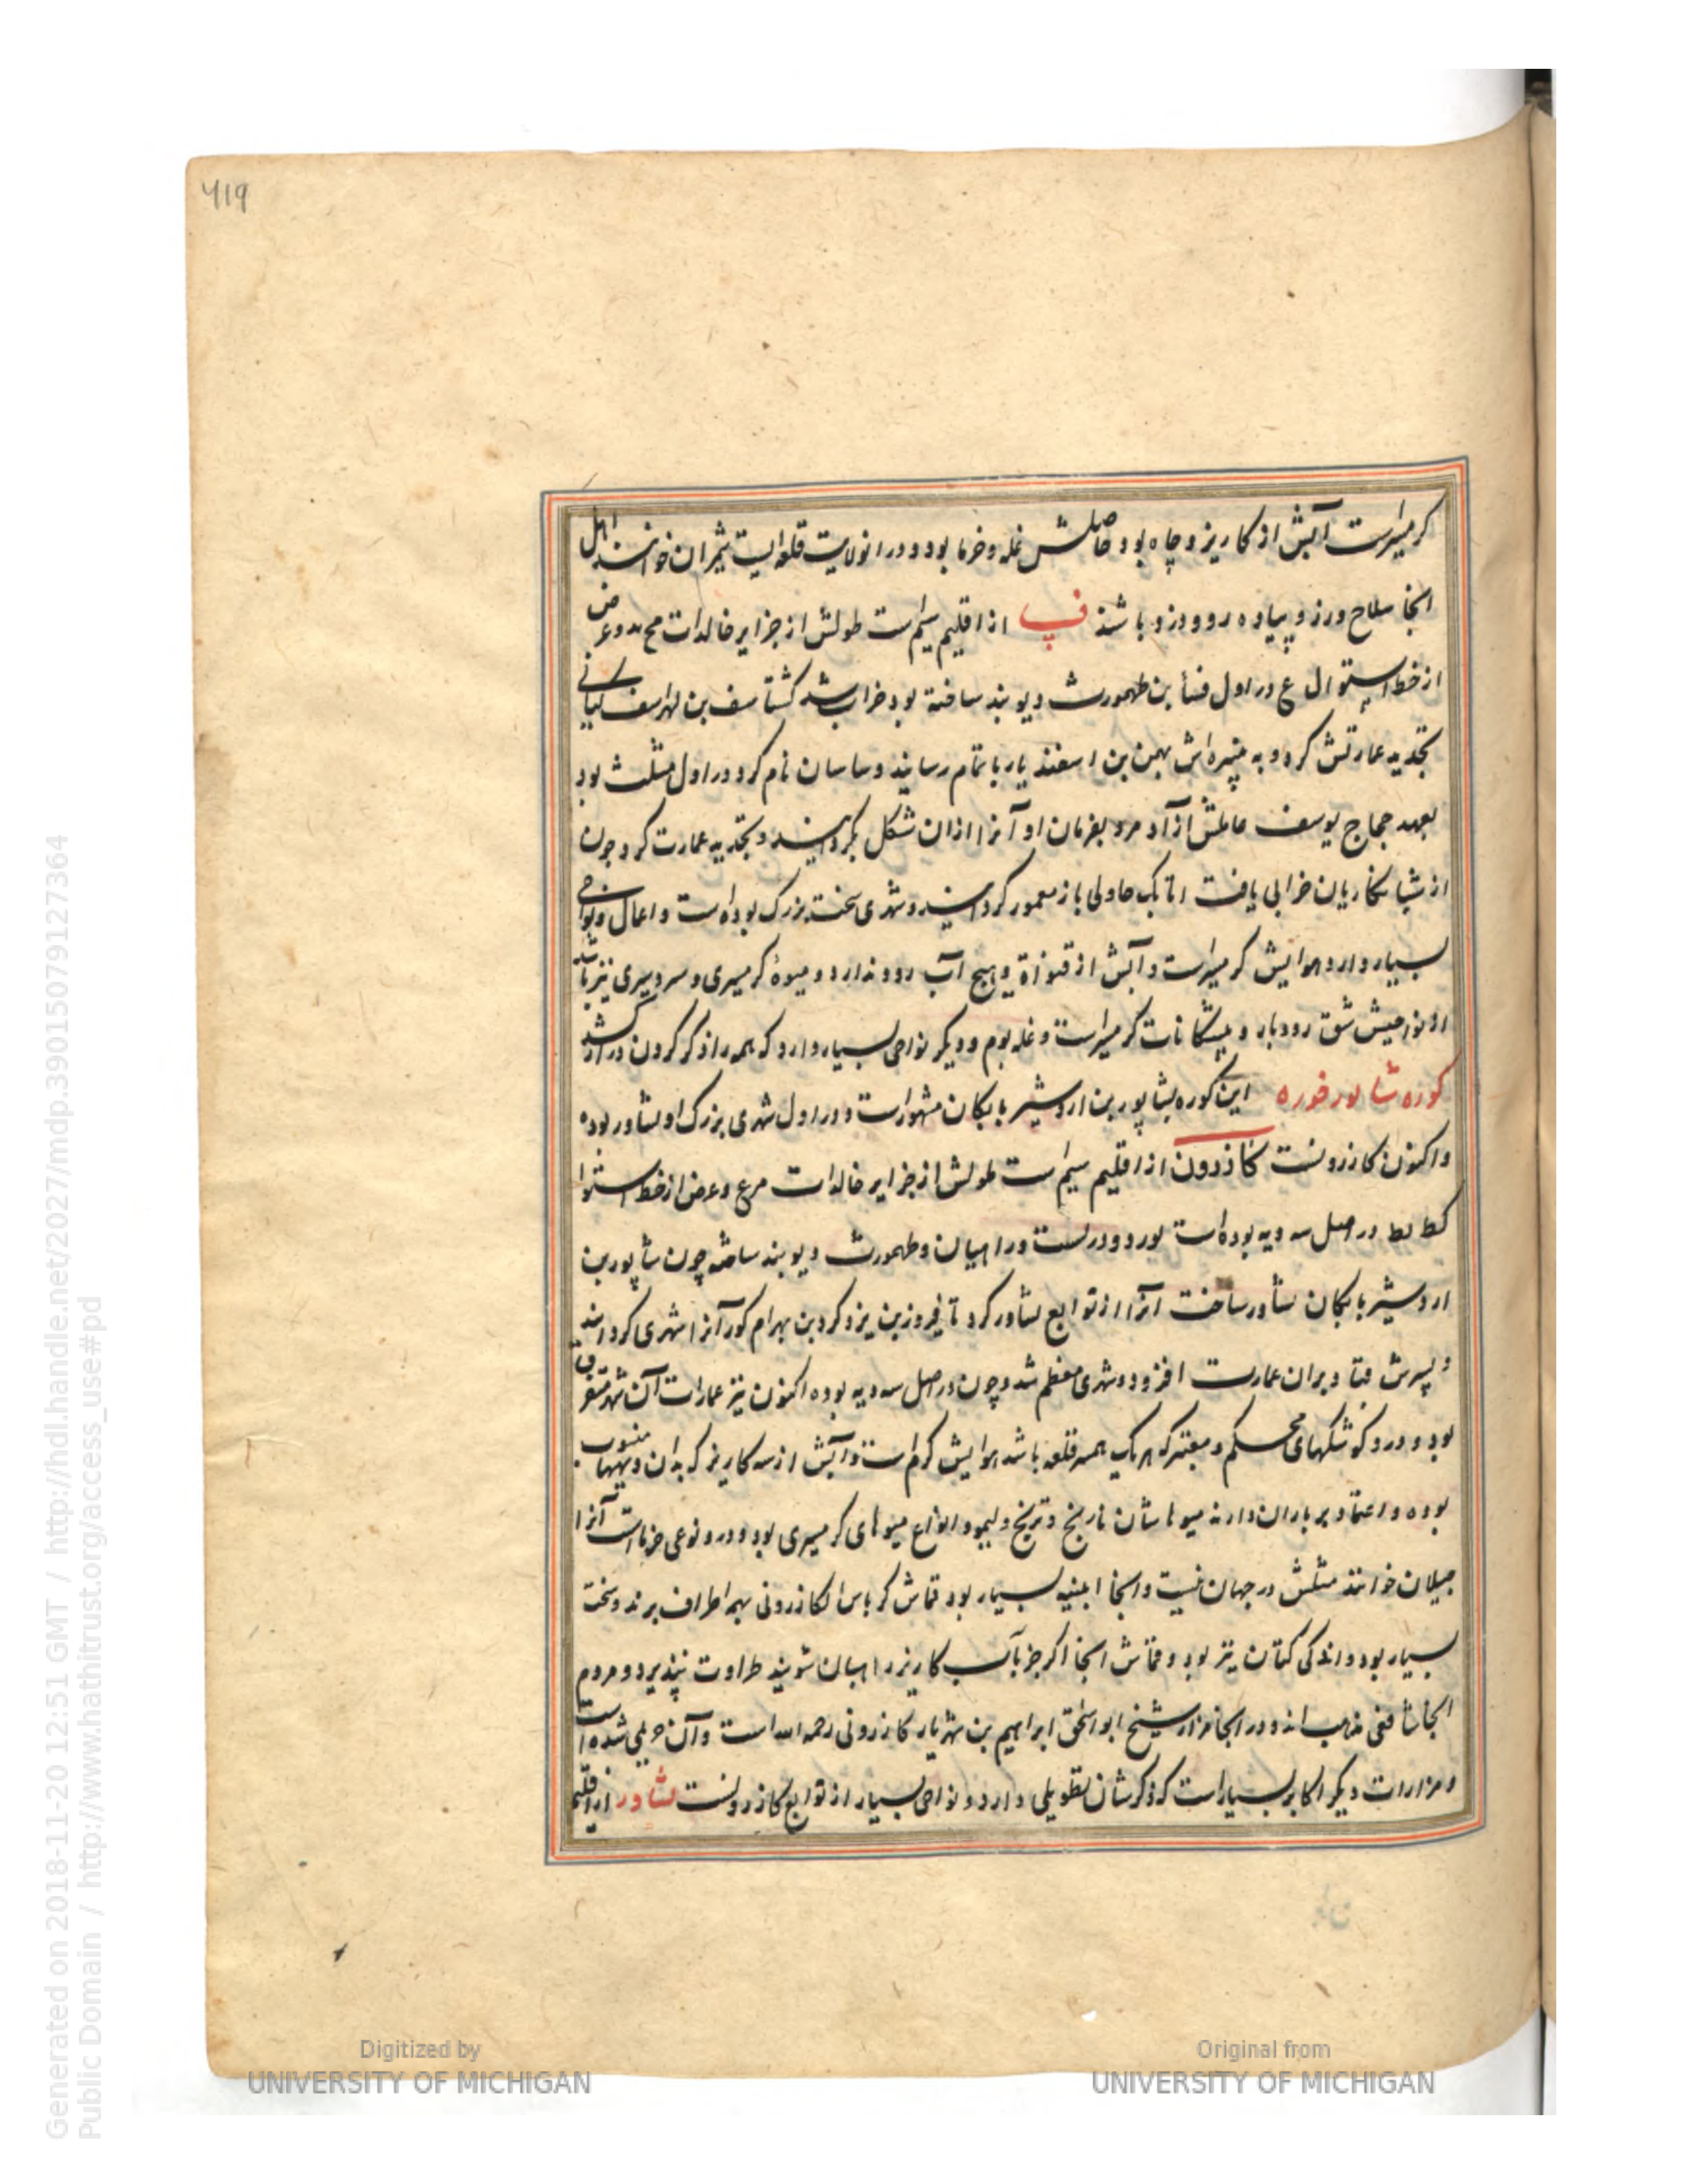 ۶۱۹
کرمسیرست آبش از کاریز و چاه بود حاصلش غله و خرما بود و در انولایت قلعه ایست تیمران خوانند اهل
آنجا سلاح ورز و پیاده رو و دزد باشند فسا از اقلیم سیم است طولش از جزایر خالدات مح مه و عرض
از خط استوا ل ع در اول فسا بن طهمورث دیوبند ساخته بود خراب شد کشتاسف بن لهراسف کیانی
تجدید عمارتش کرد و به نبیره اش بهمن بن اسفندیار باتمام رسانید و ساسان نام کرد و در اول مثلث بود
بعهد حجاج یوسف عاملش آزاد مرد بفرمان او آنرا ازان شکل بگردانید و تجدید عمارت کرد چون
از شبانکاریان خرابی یافت اتابک چاولی باز معمور کردانید و شهری سخت بزرک بوده است و اعمال و نواحی
بسیار دارد هوایش کرمسیرست و آبش از قنوات و هیچ آب رود ندارد و میوۀ کرمسیری و سردسیری نیز باشد
از نواحیش شق رودبار و میشکانات کرمسیرست و غله بوم و دیکر نواحی بسیار دارد که همه را ذکر کردن دراز کشد
کوره شابور خوره این کوره بشاپور بن اردشیر بابکان مشهورست و در اول شهری بزرک او بشاور بوده
و اکنون کازرونست کازرون از اقلیم سیم است طولش از جزایر خالدات مرع و عرض از خط استوا
کط یط در اصل سه دیه بوده است نورد و دربست و راهبان و طهمورث دیوبند ساخته چون شاپور بن
اردشیر بابکان بشاور ساخت آنرا از توابع بشاور کرد تا فیروز بن یزدکرد بن بهرام کور آنرا شهری کردانید
و پسرش قباد بران عمارت افزود و شهری معظم شد و چون در اصل سه دیه بوده اکنون نیز عمارات آن شهر متفرق
بود و درو کوشکهای محکم و معتبر که هر یک همسر قلعه باشد هوایش کرم است و آبش از سه کاریز که بدان دیهها منسوب
بوده و اعتماد بر باران دارند میوهاشان نارنج و ترنج و لیمو و انواع میوهای کرمسیری بود و درو نوعی خرماست آنرا
جیلان خوانند مثلش در جهان نیست و آنجا ابنیه بسیار بود قماش کرباس الکازرونی بهمه اطراف برند و سخت
بسیار بود و اندکی کتان نیز بود و قماش آنجا اکر جز بآب کاریز راهبان شویند طراوت نپذیرد و مردم
آنجا شافعی مذهب اند و در آنجا مزار شیخ ابو اسحق ابراهیم بن شهریار کازرونی رحمه الله است و آن حرمی شده است
و مزارات دیکر اکابر بسیارست که ذکرشان تطویلی دارد و نواحی بسیار از توابع کازرونست بشاور از اقلیم
Digitized by
UNIVERSITY OF MICHIGAN
Original from
UNIVERSITY OF MICHIGAN
Generated on 2018-11-20 12:51 GMT / http://hdl.handle.net/2027/mdp.39015079127364
Public Domain / http://www.hathitrust.org/access_use#pd